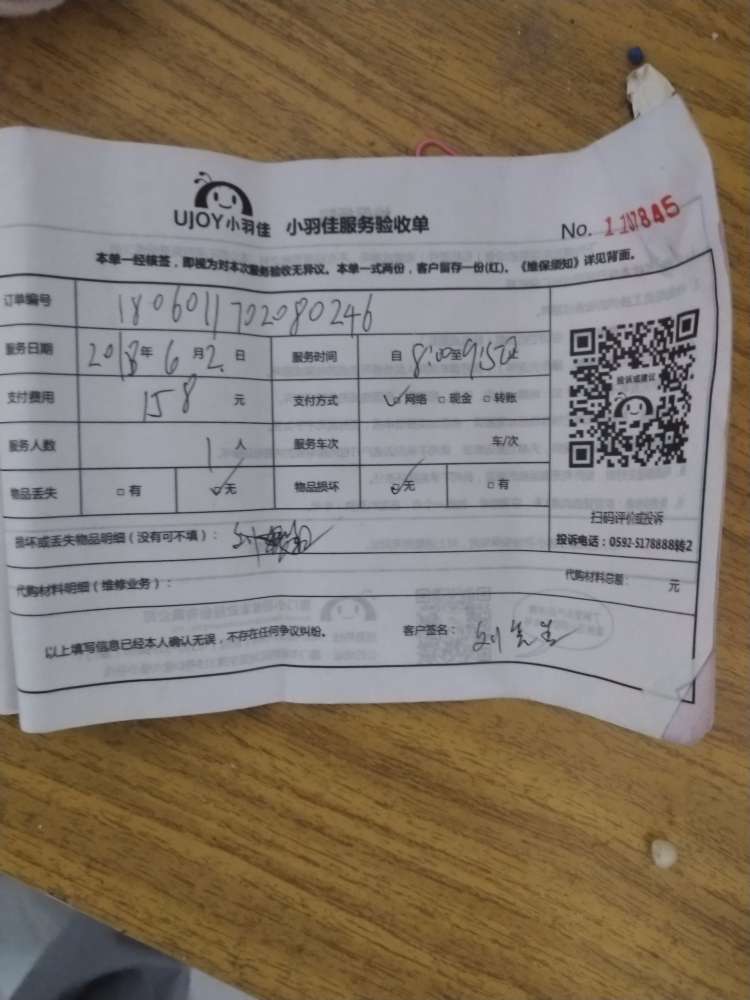 UJOY小羽佳 小羽佳服务验收单 No. 1107845
本单一经核签，即视为对本次服务验收无异议。本单一式两份，客户留存一份(红)、《维保须知》详见背面。
订单编号 1806011702080246
服务日期 2018年6月2日 服务时间 自8:00至9:50止
支付费用 158元 支付方式 ☑网络 □现金 □转账
服务人数 1人 服务车次 车/次
物品丢失 □有 ☑无 物品损坏 ☑无 □有
投诉或建议
扫码评价或投诉
投诉电话：0592-5178888转2
损坏或丢失物品明细（没有可不填）：
代购材料明细（维修业务）： 代购材料总额： 元
以上填写信息已经本人确认无误，不存在任何争议纠纷。 客户签名：刘先生